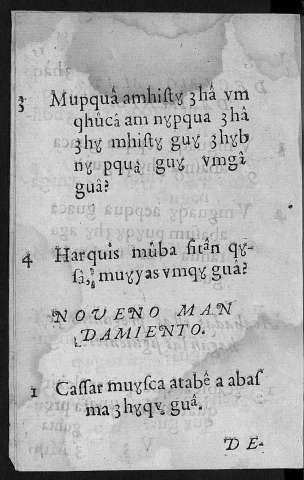 3 Mupquâ amhisty ȝhâ vm
qhûcâ am nypqua ȝhâ
ȝhy mhisty guy ȝhyb
ny pquâ guy vmgâ
guâ?
4 Harquîs mûba sitân qy-
sâ, muyyas vmqy guâ?
NOVENO MAN
DAMIENTO.
1 Cassar muysca atabê a abas
ma ȝhyqy guâ.
D E-